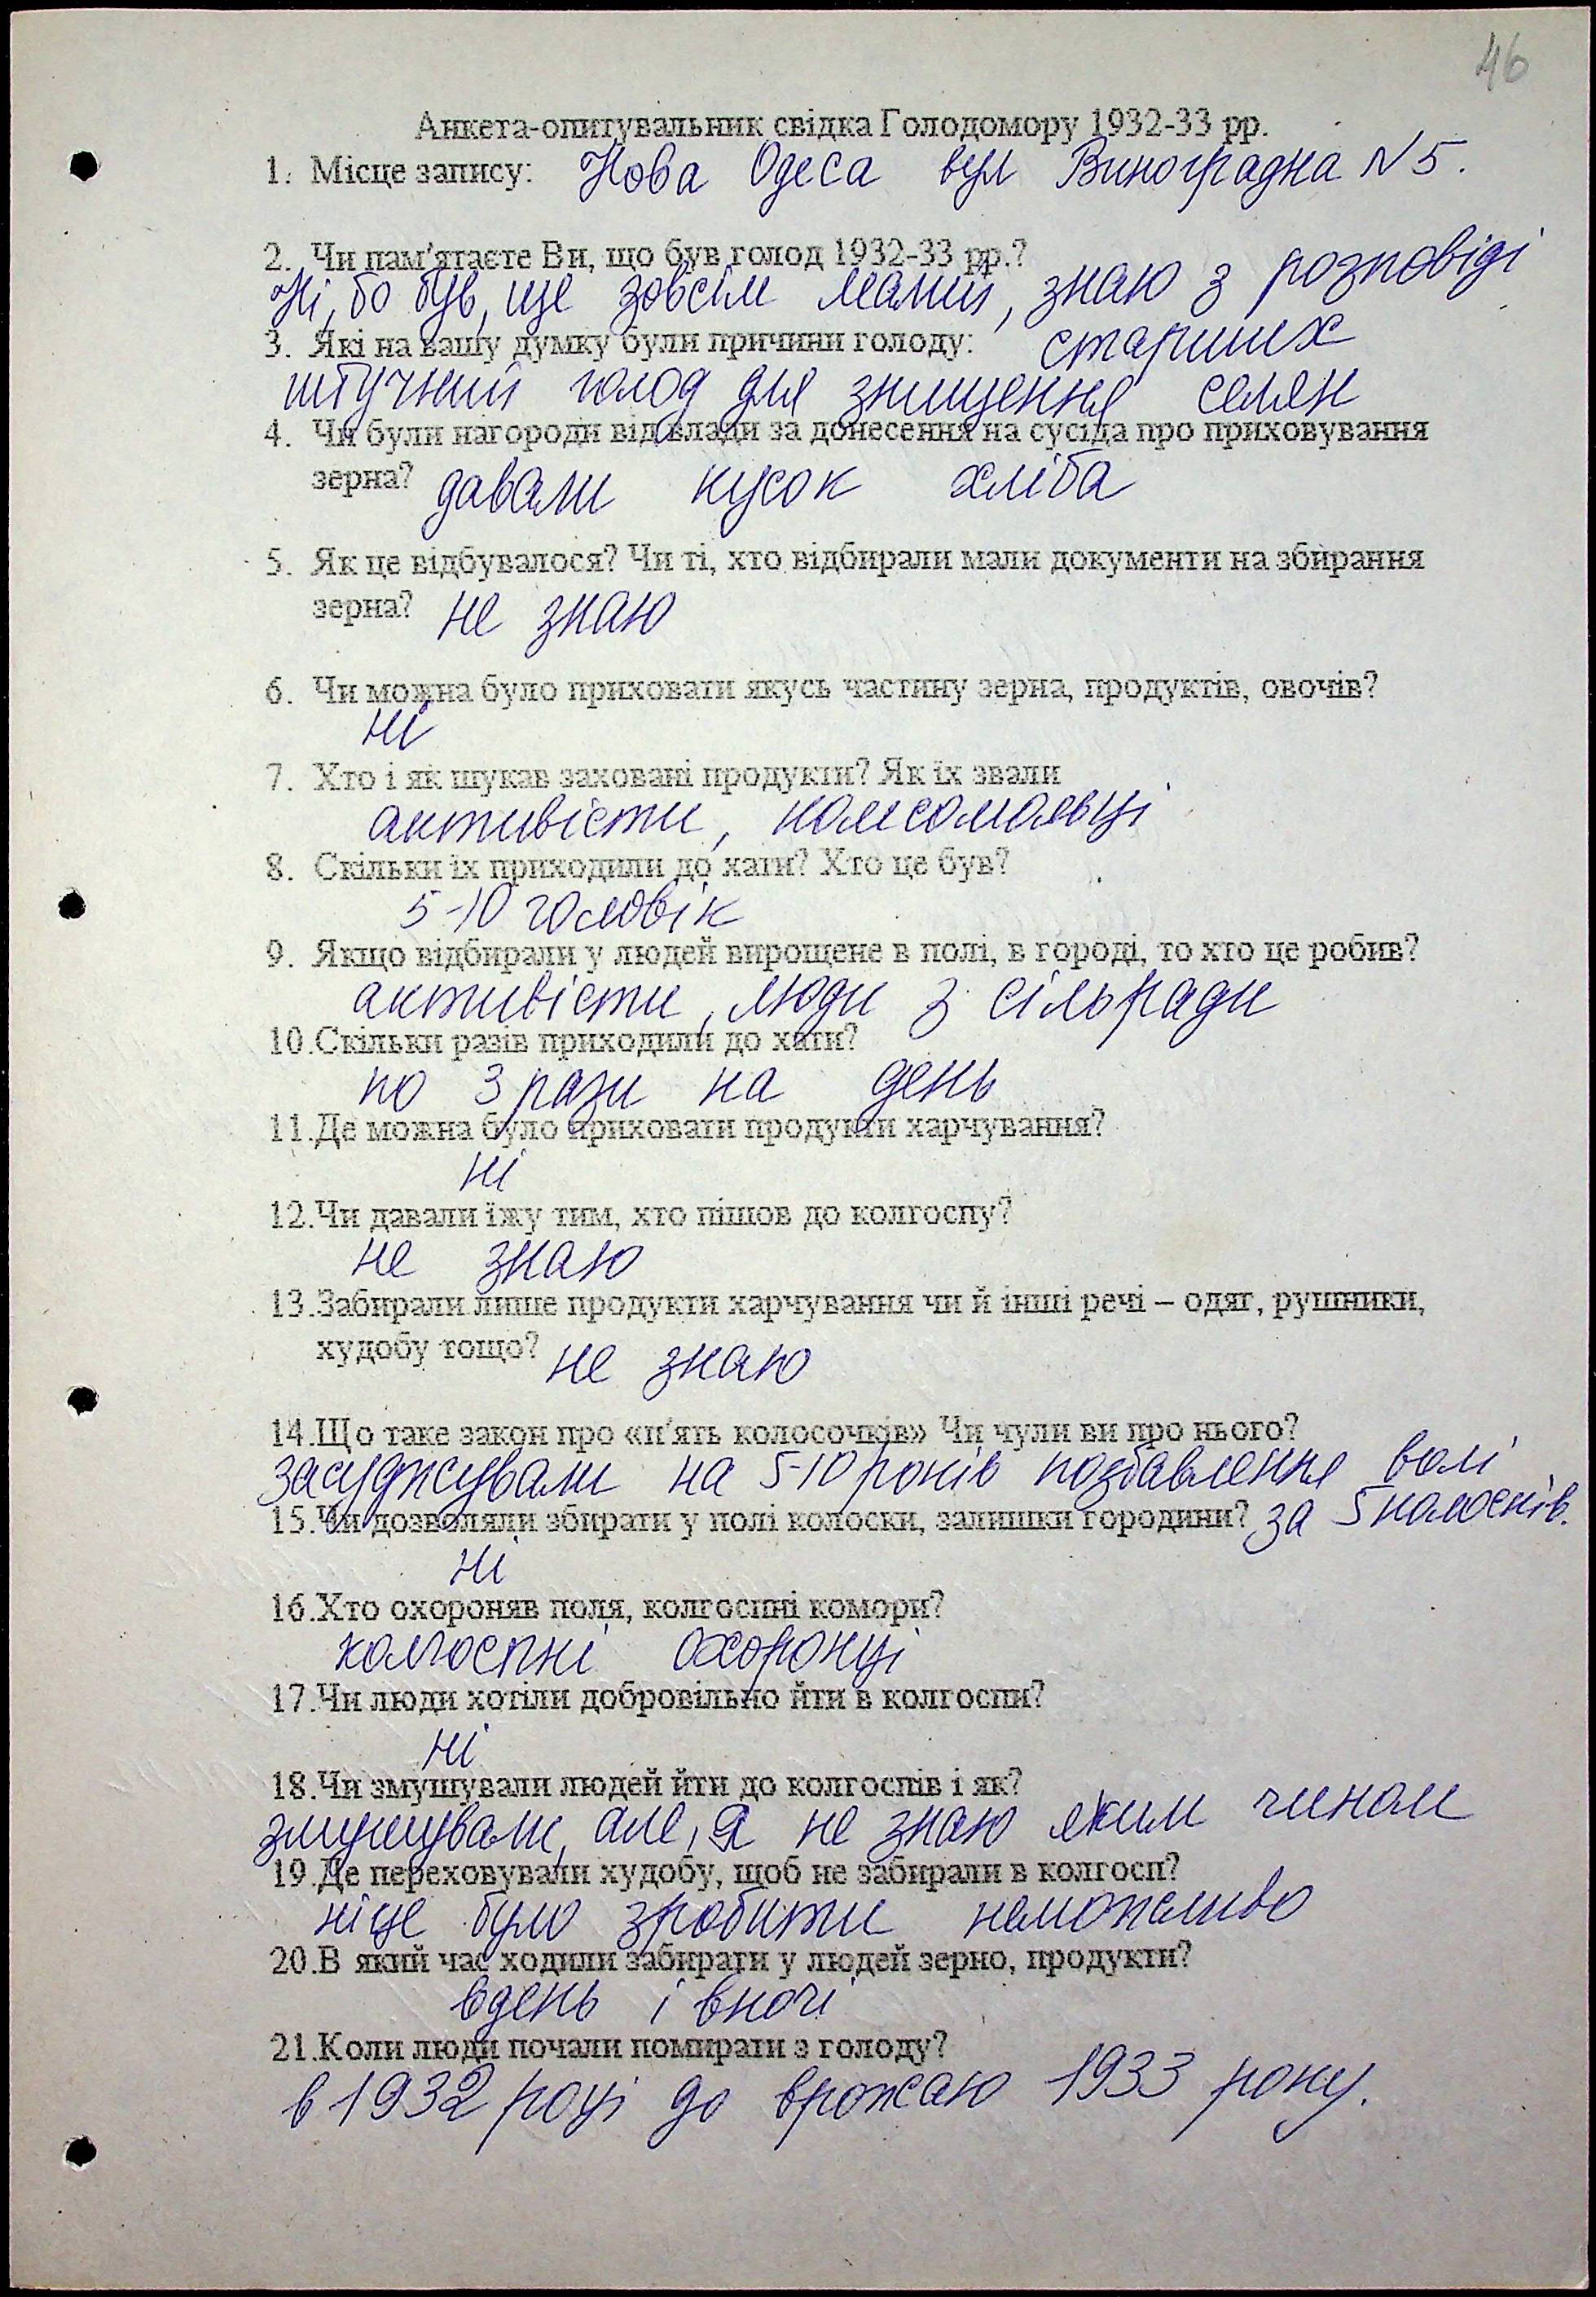 46
Анкета-опитувальник свідка Голодомору 1932-33 рр.
1. Місце запису: Нова Одеса вул Виноградна N 5.
2. Чи пам'ятаєте Ви, що був голод 1932-33 рр.?
Ні, бо був, ще зовсім малий, знаю з розповіді
старших
3. Які на вашу думку були причини голоду:
штучний голод для знищення селян
4. Чи були нагороди від влади за донесення на сусіда про приховування
зерна? давали кусок хліба
5. Як це відбувалося? Чи ті, хто відбирали мали документи на збирання
зерна? не знаю
6. Чи можна було приховати якусь частину зерна, продуктів, овочів?
ні
7. Хто і як шукав заховані продукти? Як їх звали
активісти, комсомольці
8. Скільки їх приходили до хати? Хто це був?
5-10 чоловік
9. Якщо відбирали у людей вирощене в полі, в городі, то хто це робив?
активісти, люди з сільради
10.Скільки разів приходили до хати?
по 3 рази на день
11.Де можна було приховати продукти харчування?
ні
12.Чи давали їжу тим, хто пішов до колгоспу?
не знаю
13.Забирали лише продукти харчування чи й інші речі – одяг, рушники,
худобу тощо? не знаю
14.Що таке закон про «п'ять колосочків» Чи чули ви про нього?
засуджували на 5-10 років позбавлення волі
за 5 колосків.
15.Чи дозволяли збирати у полі колоски, залишки городини?
ні
16.Хто охороняв поля, колгоспні комори?
колгоспні охоронці
17.Чи люди хотіли добровільно йти в колгоспи?
ні
18.Чи змушували людей йти до колгоспів і як?
змушували, але, я не знаю яким чином
19.Де переховували худобу, щоб не забирали в колгосп?
ніце було зробити неможливо
20.В який час ходили забирати у людей зерно, продукти?
вдень і вночі
21.Коли люди почали помирати з голоду?
в 1932 році до врожаю 1933 року.